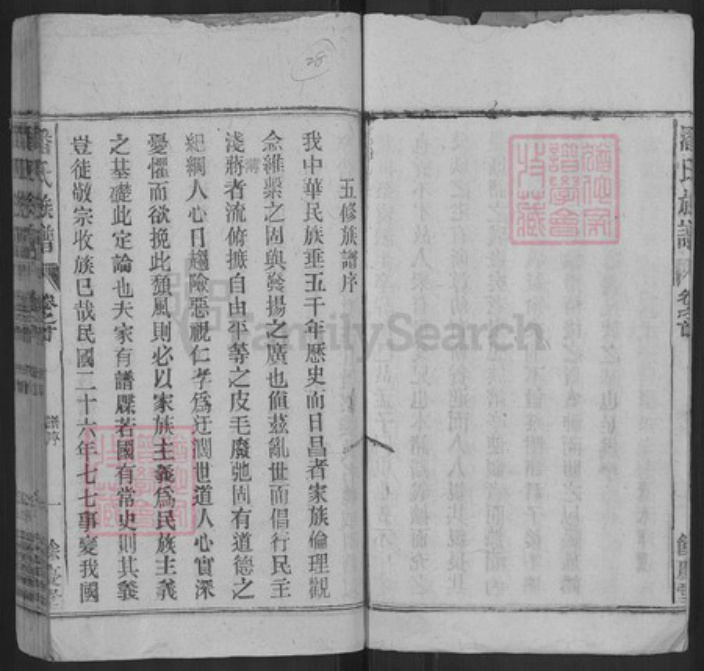 28
五修族譜序
我中華民族垂五千年歷史而日昌者家族倫理觀
念維繫之固與發揚之廣也値茲亂世而倡行民主
淺薄者流俯摭自由平等之皮毛廢弛固有道德之
紀綱人心日趨險惡視仁孝爲迂濶世道人心實深
憂懼而欲挽此頹風則必以家族主義爲民族主義
之基礎此定論也夫家有譜牒若國有常史則其義
豈徒敬宗收族已哉民國二十六年七七事變我國
潘氏族譜
卷之首
譜序
一
餘慶堂
潘氏族譜
卷之首
餘慶堂
FamilySearch